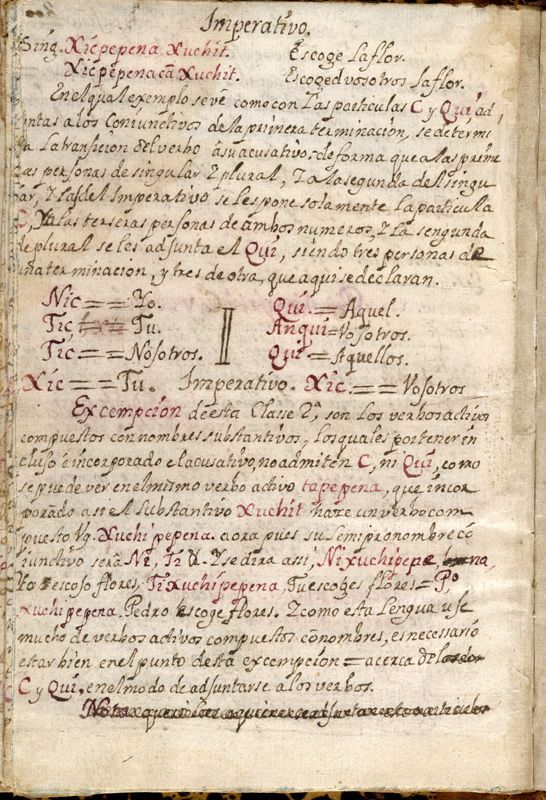 Imperativo.
Sing. Xicpepena Xuchit. Escoge La flor.
Xicpepenacā Xuchit. Escoged vosotros La flor.
En el qual exemplo se vé como con Las particulas C y Qui ad
juntas a los Coniunctivos de la primera terminacion, se determi
na La transicion del verbo à su acusativo = de forma que a las prime
ras personas de singular y plural, Y a la segunda del singu
lar, y las del Imperativo se les pone solamente La particula
C, Y a las terseras personas de ambos numeros, y La sengunda
de plural se les adjunta el Qui, siendo tres personas de
una terminacion, y tres de otra, que aqui se declaran.
Nic == Yo. Qui. = Aquel.
Tic == Tu. Anqui = Vosotros.
Tic == Nosotros. Qui = Aquellos.
Xic == Tu. Imperativo. Xic. == Vosotros
Excempcion de esta Clase 2ª. son Los verbos activos
compuestos con nombres substantivos, Los quales por tener in
cluso è incorporado el acusativo, no admiten C, ni Qui, como
se puede ver en el mismo verbo activo tapepena, que incor
porado assi el Substantivo Xuchit haze un verbo com
puesto Vg. Xuchipepena. aora pues su Semipronombre cō
iunctivo serà Ni, Ti &. Y se dira assi, Nixuchipepe na,
Yo escojo flores, Tixuchipepena, Tu escoges flores = Po
xuchipepena. Pedro escoge flores. Y como esta Lengua use
mucho de verbos activos compuestos cō nombres, es necessario
estar bien en el punto desta excempcion = acerca de
C y Qui, en el modo de adjuntarse a los verbos.